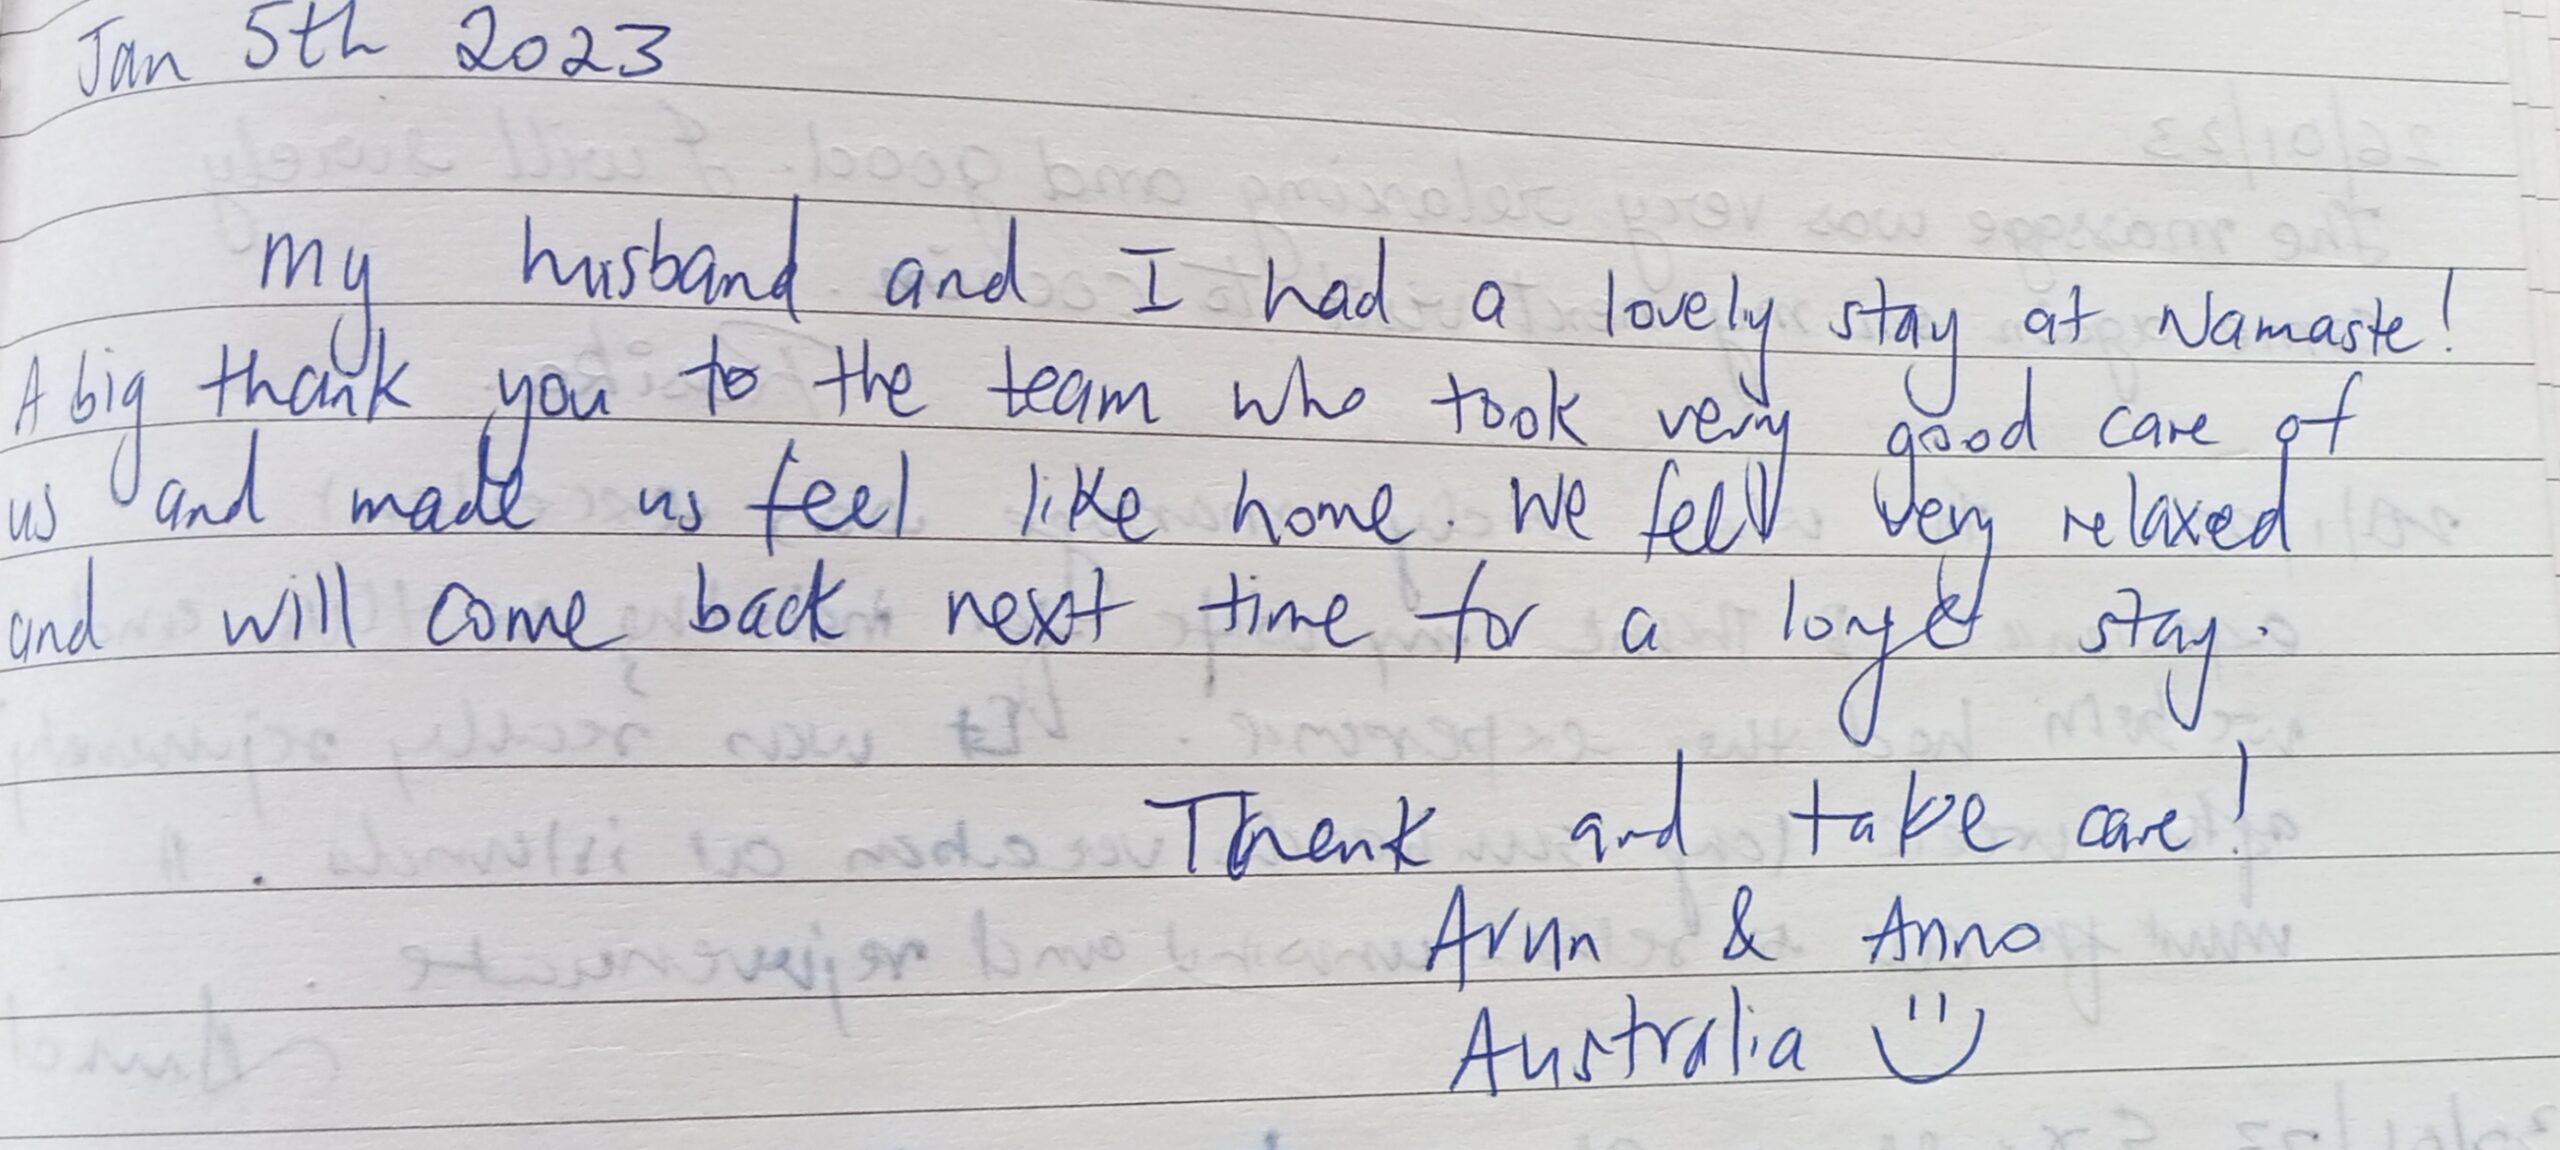 Jan 5th 2023
My husband and I had a lovely stay at Namaste!
A big thank you to the team who took very good care of
us and made us feel like home. We fell very relaxed
and will come back next time for a longer stay.
Thank and take care!
Arun & Anno
Australia